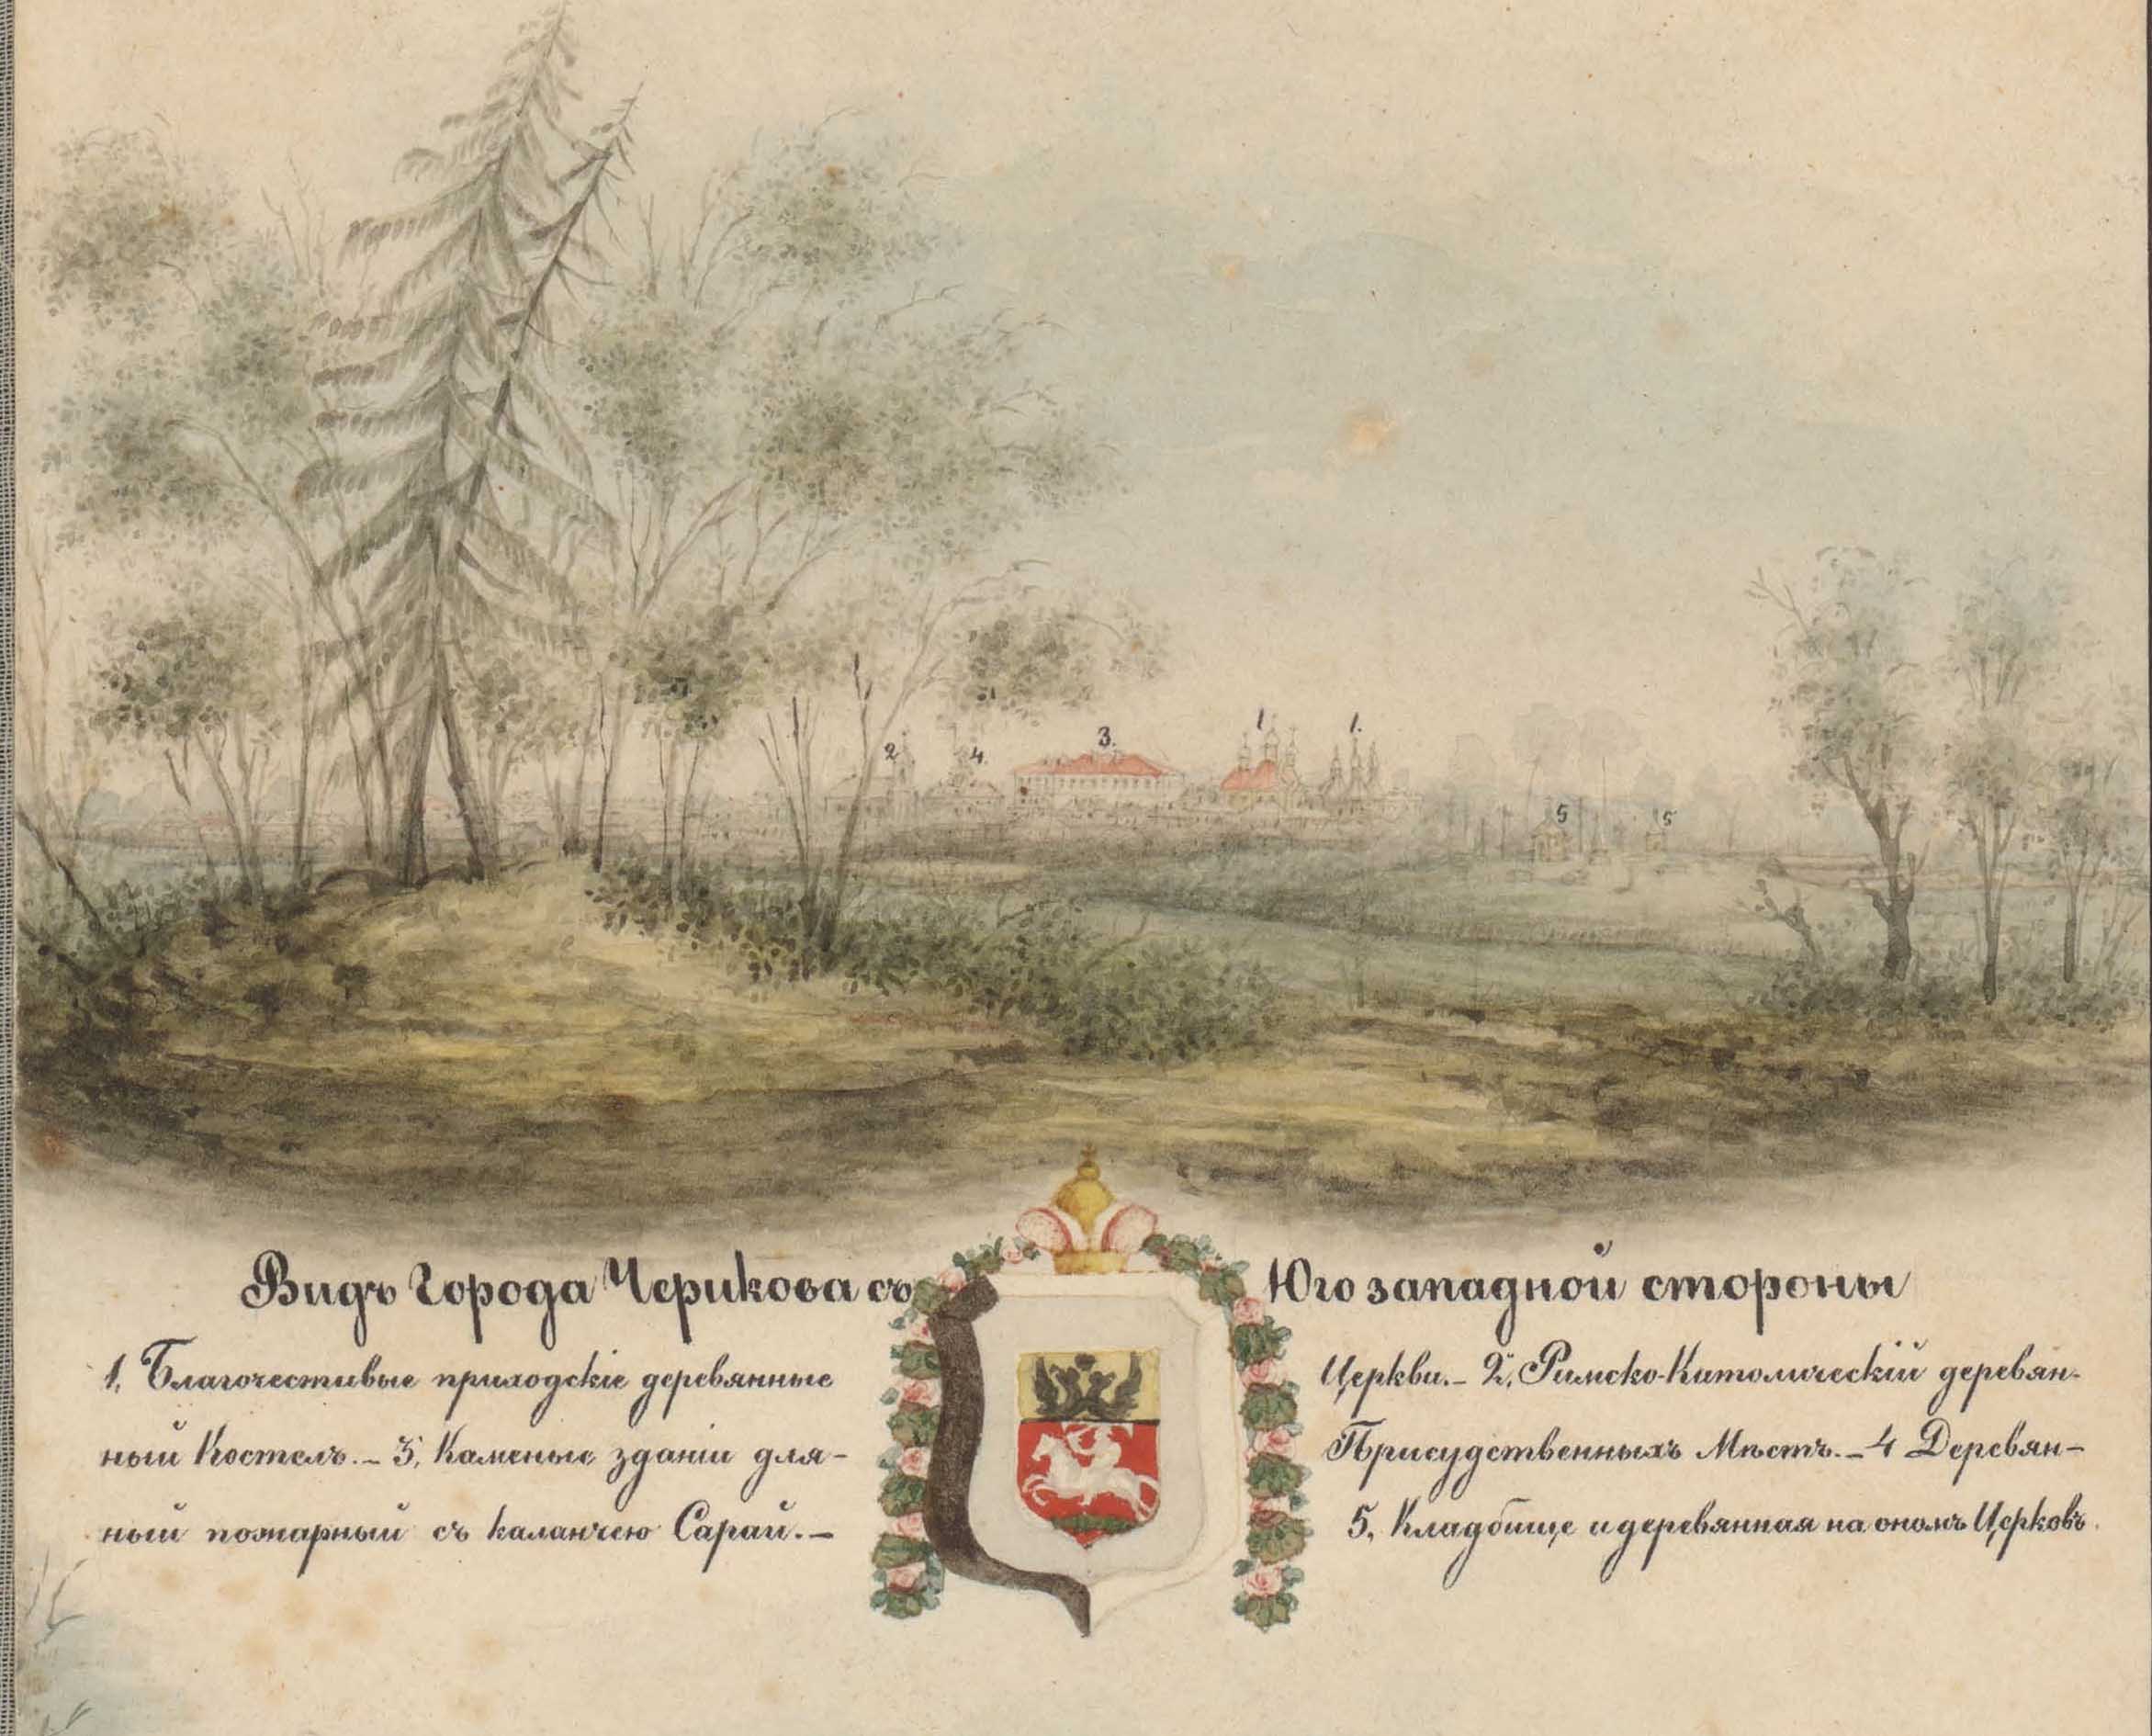 2 4. 3. 1 1. 5 5
Видъ Города Черикова съ Юго западной стороны
1, Благочестивые приходскіе деревянные Церкви.- 2, Римско-Католическій деревян-
ный Костелъ.- 3, Каменые зданіи для- Присудственныхъ Мѣстъ.- 4 Деревян-
ный пожарный съ каланчею Сарай.- 5, Кладбище и деревянная на ономъ Церковь.